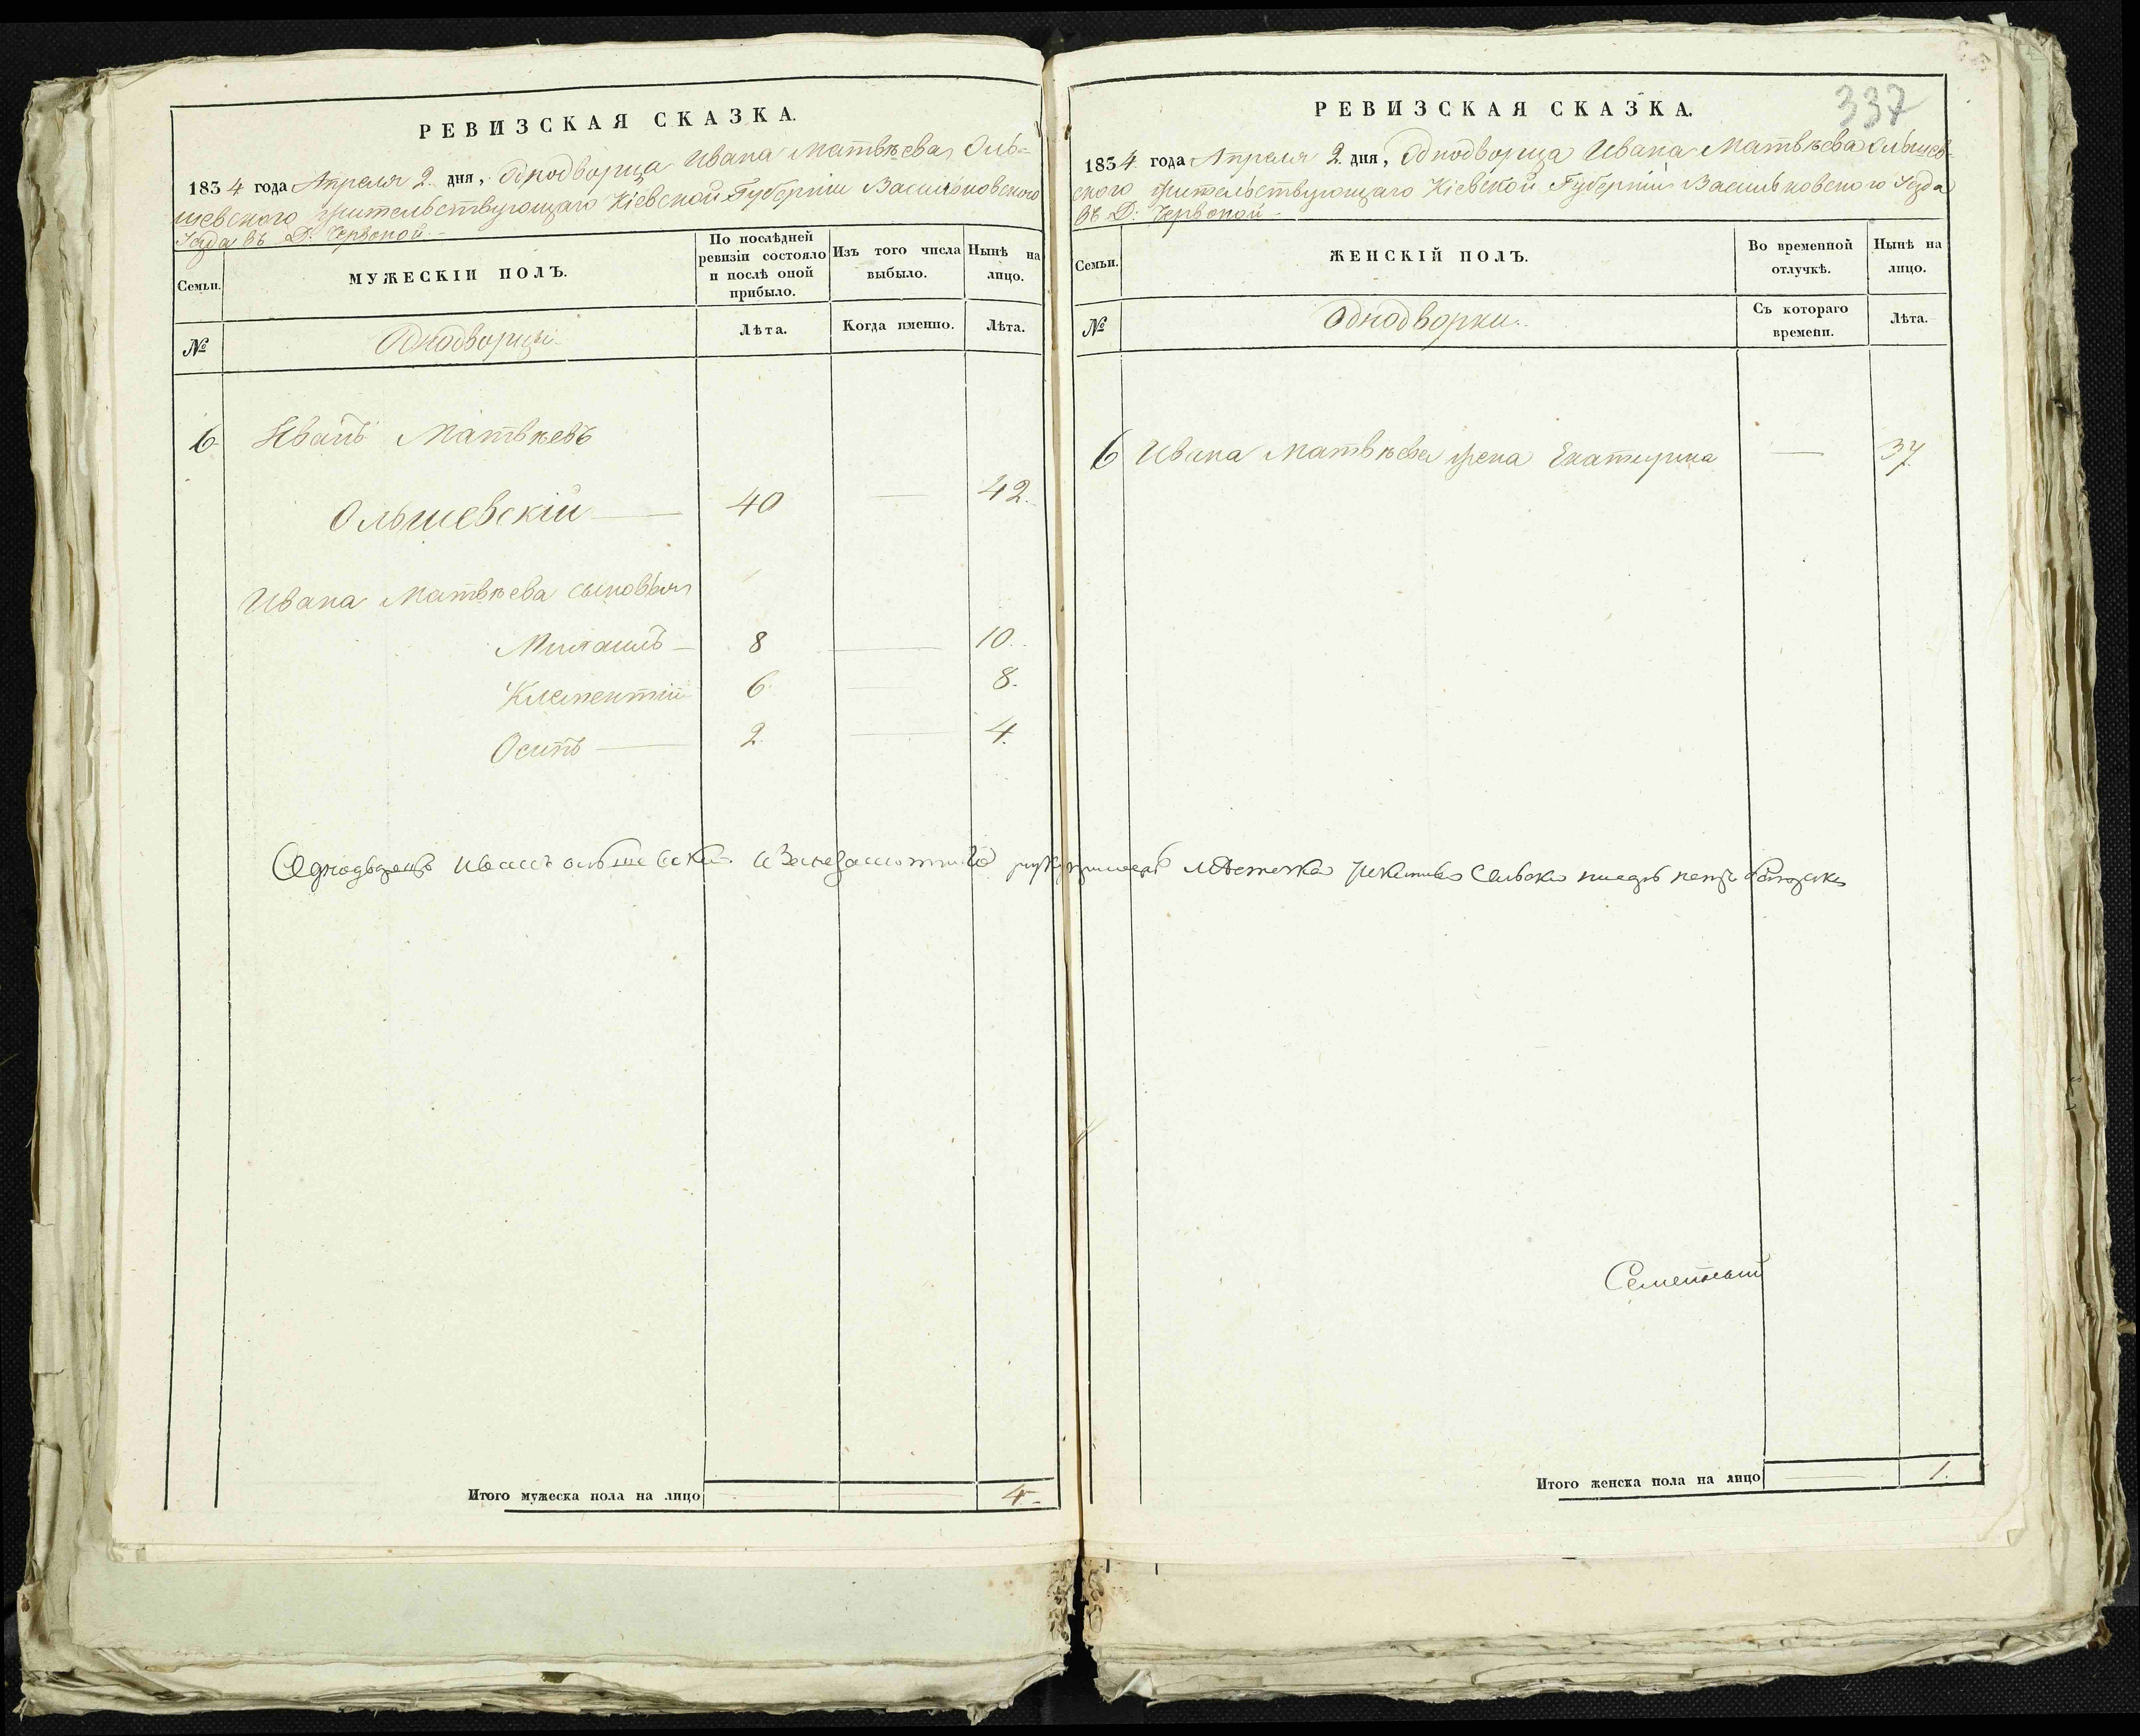 РЕВИЗСКАЯ СКАЗКА.
1834 года Апреля 2. дня, Однодворца Ивана Матвѣева Оль-
шевского жительствующаго Кіевской Губерніи Васильковского
Уезда въ Д. Червоной.
Семьи.
МУЖЕСКІЙ ПОЛЪ.
По послѣдней ревизіи состояло и послѣ оной прибыло.
Изъ того числа выбыло.
Нынѣ на лицо.
№
Однодворцы
Лѣта.
Когда именно.
Лѣта.
6 Иванъ Матвѣевъ
Ольшевскій — 40 — 42.
Ивана Матвѣева сыновья
Михаилъ — 8 — 10.
Климентій 6 — 8.
Осипъ — 2. — 4.
Итого мужеска пола на лицо — — 4.
337
РЕВИЗСКАЯ СКАЗКА.
1834 года Апреля 2. дня, Однодворца Ивана Матвѣева Ольшев-
ского жительствующаго Кіевской Губерніи Васильковского Уезда
въ Д. Червоной
Семьи.
ЖЕНСКІЙ ПОЛЪ.
Во временной отлучкѣ.
Нынѣ на лицо.
№
Однодворки.
Съ котораго времени.
Лѣта.
6 Ивана Матвѣева жена Екатерина — 37.
Однодворецъ Иванъ Ольшевски
Итого женска пола на лицо — 1.